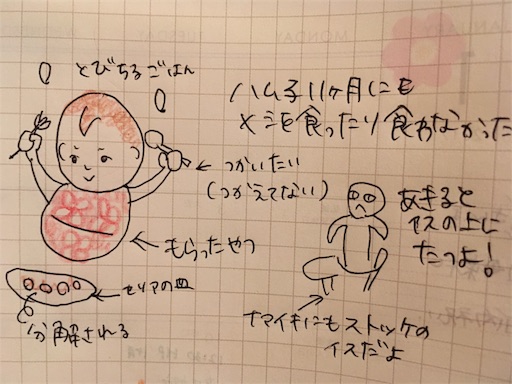 とびちるごはん
ハム子11ヶ月にも
メシを食ったり食わなかった
つかいたい
(つかえてない)
もらったやつ
セリアの皿
分解される
あきると
イスの上に
たつよ!
ナマイキにもストッケの
イスだよ
MONDAY